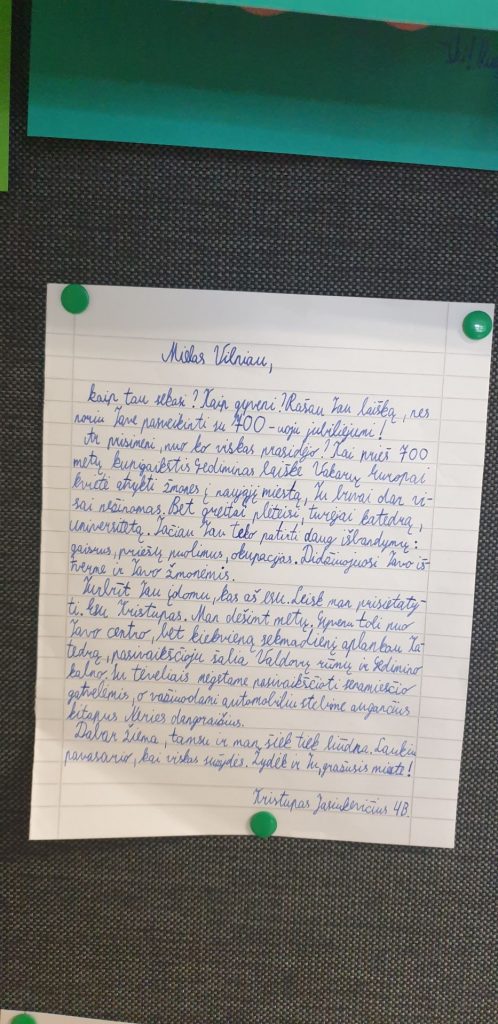 Mielas Vilniau,
kaip tau sekasi? Kaip gyveni? Rašau Tau laišką, nes
noriu Tave pasveikinti su 700-uoju jubiliejumi!
Ar prisimeni, nuo ko viskas prasidėjo? Kai prieš 700
metų kunigaikštis Gediminas laiške Vakarų Europai
kvietė atvykti žmones į naująjį miestą, Tu buvai dar vi-
sai nežinomas. Bet greitai pleteisi, turėjai katedrą,
universitetą. Tačiau Tau teko patirti daug išbandymų:
gaisrus, priešų puolimus, okupacijas. Didžiuojuosi Tavo iš-
tverme ir Tavo žmonėmis.
Turbūt Tau įdomu, kas aš esu. Leisk man prisistaty-
ti. Esu Kristupas. Man dešimt metų. Gyvenu toli nuo
Tavo centro, bet kiekvieną sekmadienį aplankau Ka-
tedrą, pasivaikščioju šalia Valdovų rūmų ir Gedimino
kalno. Su tėveliais mėgstame pasivaikščioti senamiesčio
gatvelėmis, o važiuodami automobiliu stebime augančius
kitapus Neries dangoraižius.
Dabar žiema, tamsu ir man šiek tiek liūdna. Laukiu
pavasario, kai viskas sužydės. Žydėk ir Tu, gražusis mieste!
Kristupas Jasiukevičius 4B.